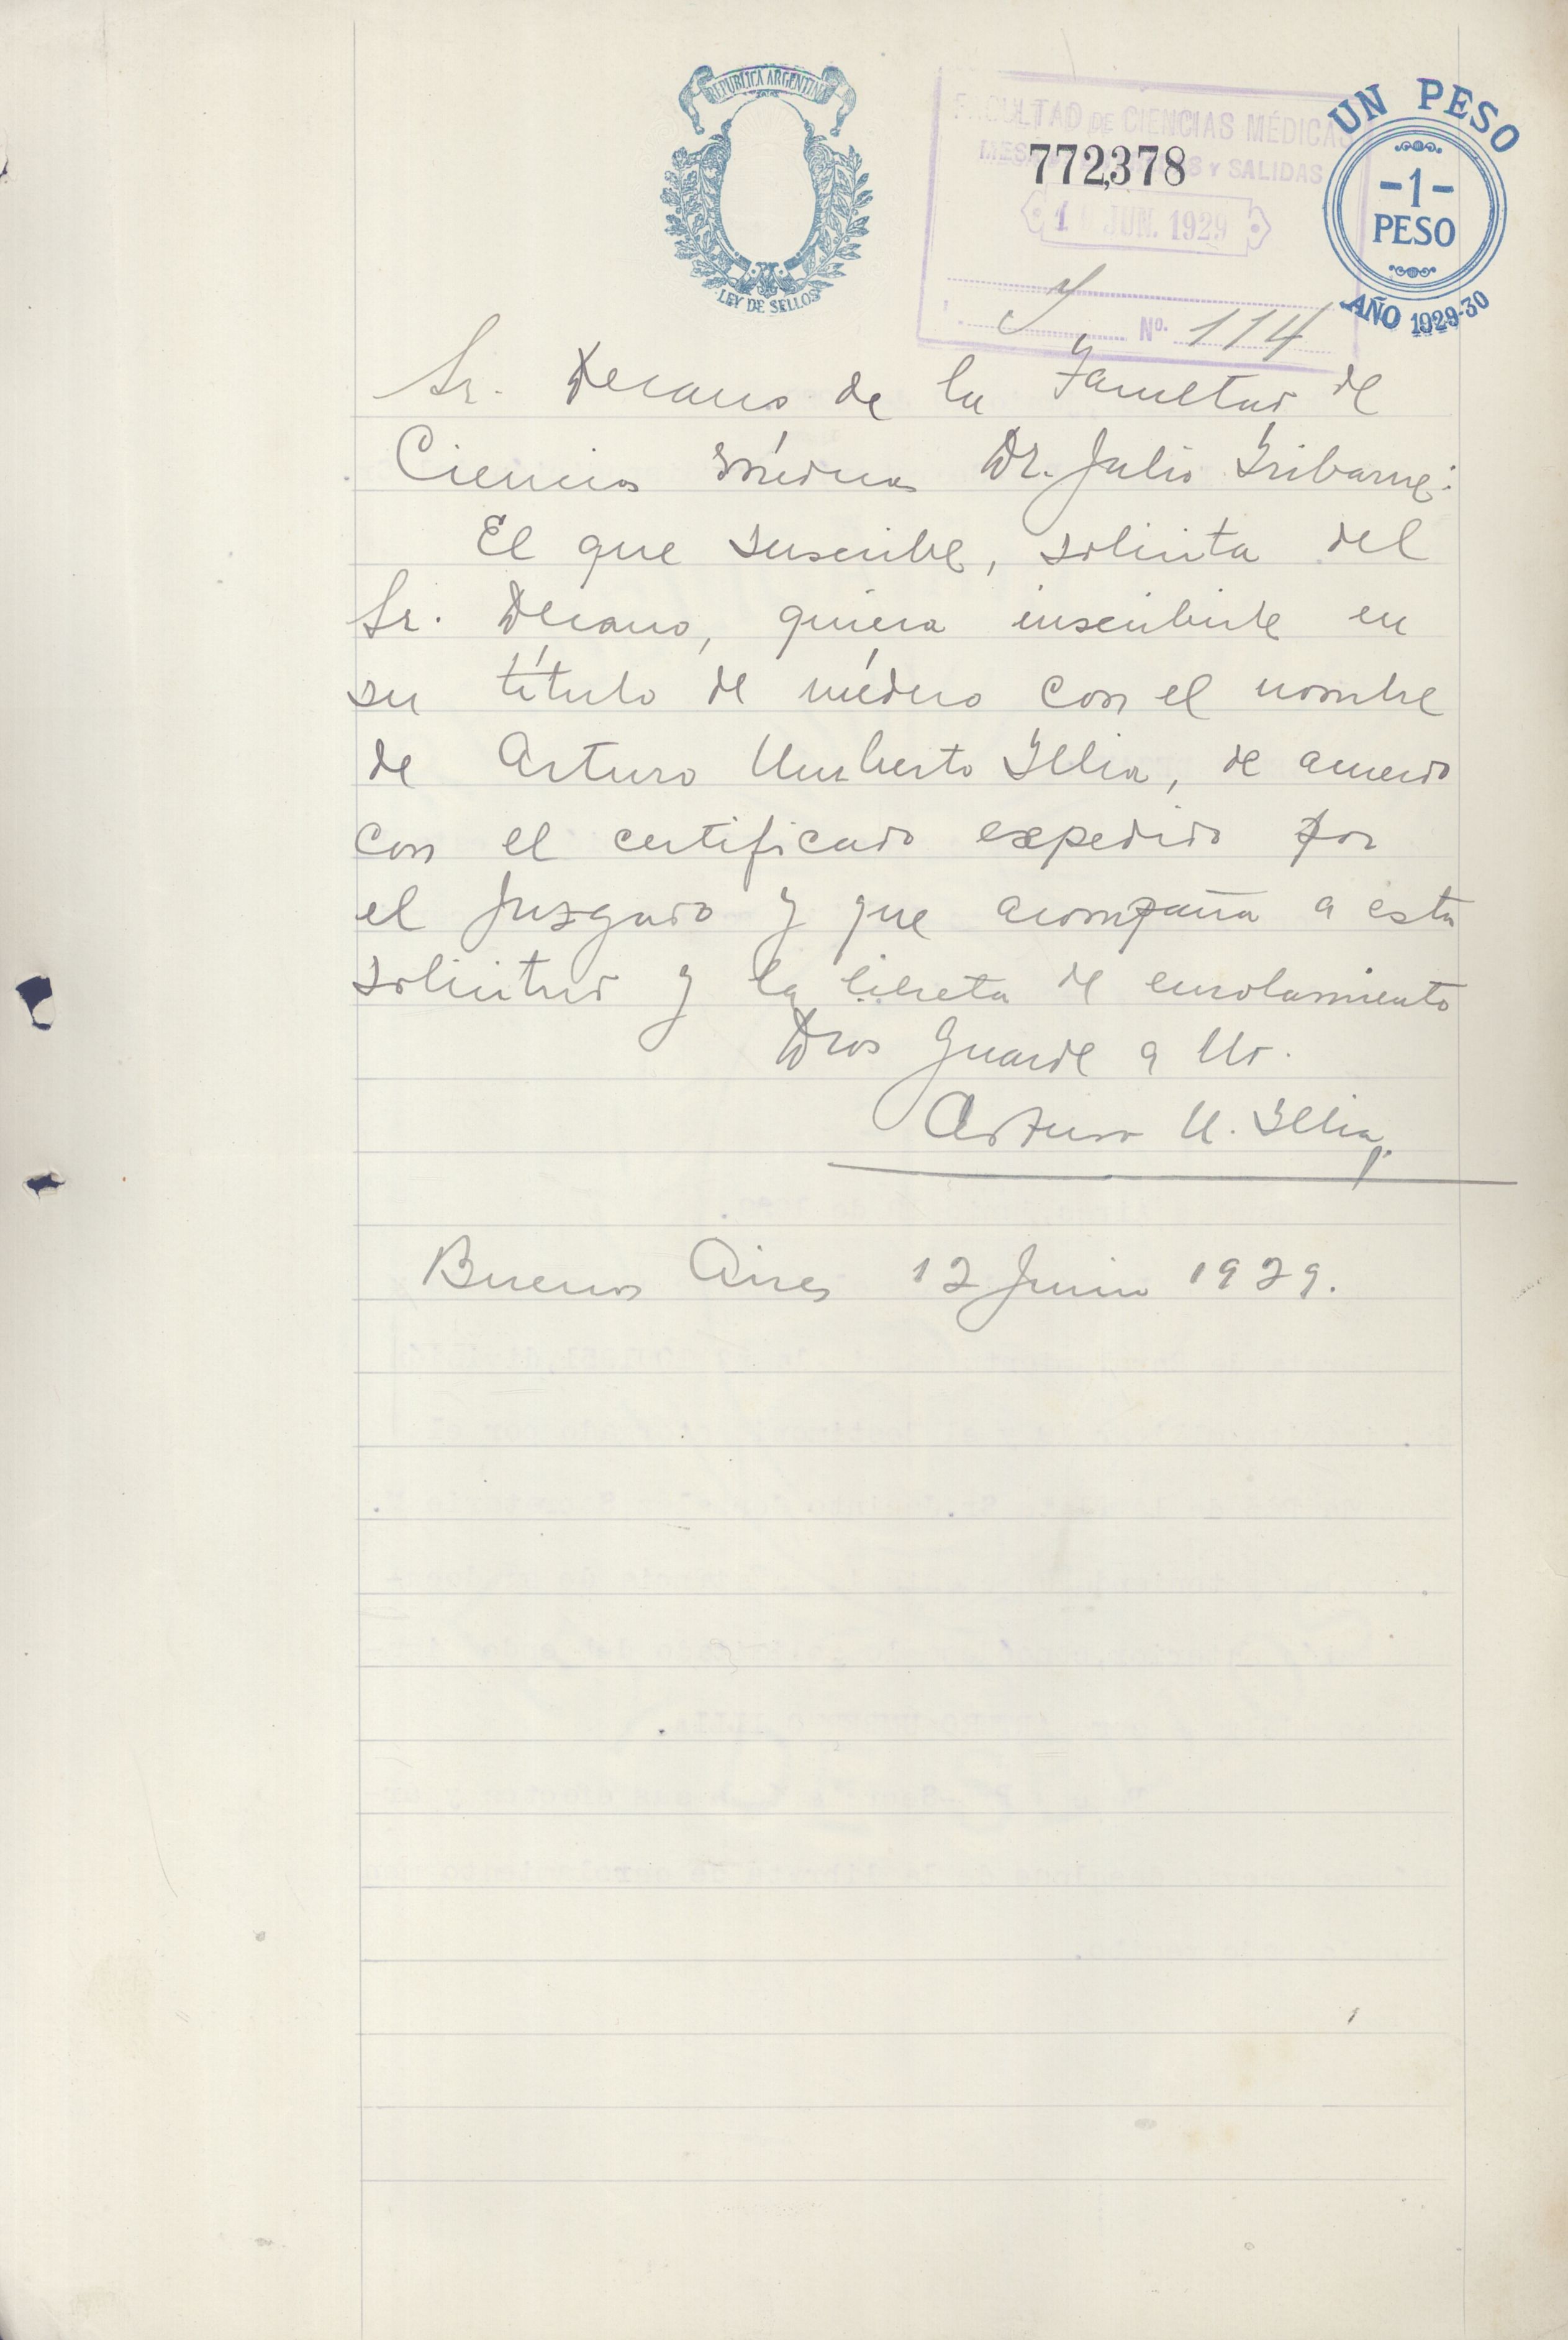 REPUBLICA ARGENTINA
LEY DE SELLOS
FACULTAD DE CIENCIAS MÉDICAS
MESA Y SALIDAS
772,378
JUN. 1929
Nº. 114
UN PESO
-1-
PESO
AÑO 1929-30
Sr. Decano de la Facultad de
Ciencias Médicas Dr. Julio Iribarne:
El que suscribe, solicita del
Sr. Decano, quiera inscribirle en
su título de médico con el nombre
de Arturo Umberto Illia, de acuerdo
con el certificado expedido por
el Juzgado y que acompaña a esta
solicitud y la libreta de enrolamiento
Dios Guarde a Ud.
Arturo U. Illia
Buenos Aires 12 Junio 1929.